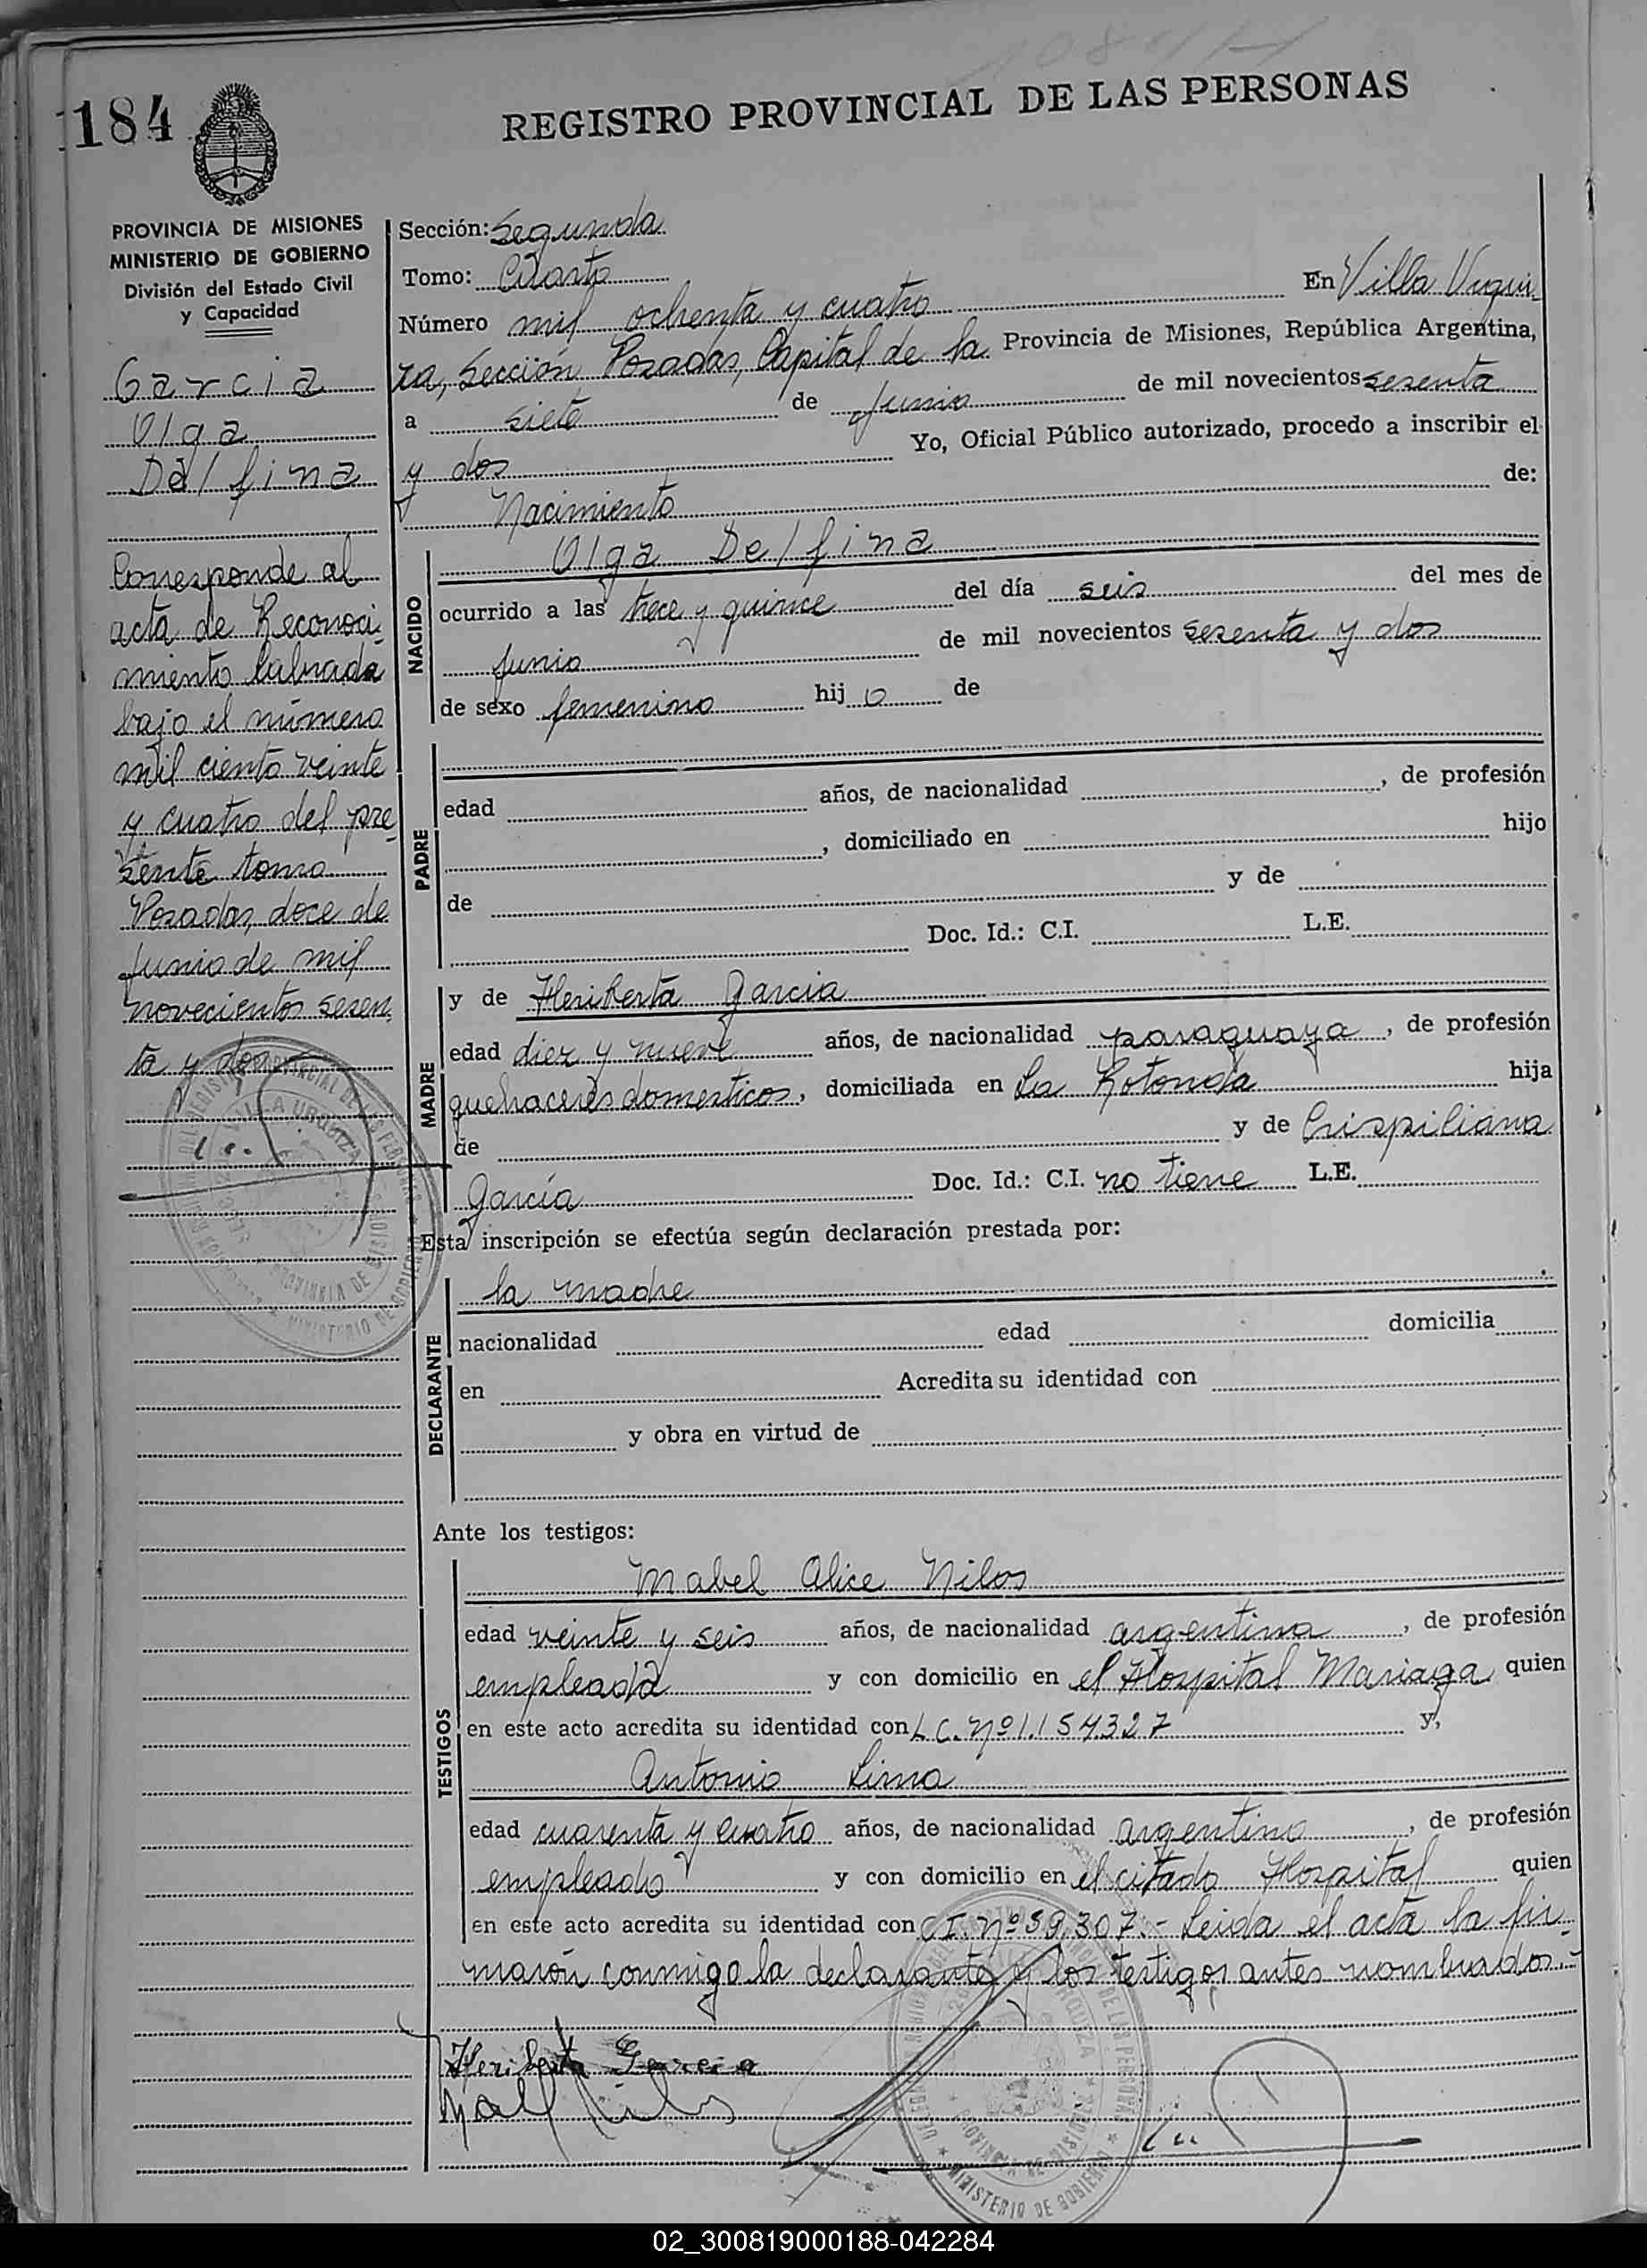 184
REGISTRO PROVINCIAL DE LAS PERSONAS
PROVINCIA DE MISIONES
MINISTERIO DE GOBIERNO
División del Estado Civil
y Capacidad
Garcia
Olga
Delfina
Corresponde al
acta de Reconoci-
miento labrada
bajo el número
mil ciento veinte
y cuatro del pre-
sente tomo
Posadas, doce de
Junio de mil
novecientos sesen-
ta y dos
Sección: Segunda
Tomo: Cuarto
Número mil ochenta y cuatro En Villa Urqui-
za, Sección Posadas, Capital de la Provincia de Misiones, República Argentina,
a siete de Junio de mil novecientos sesenta
y dos Yo, Oficial Público autorizado, procedo a inscribir el
Nacimiento de:
NACIDO
Olga Delfina
ocurrido a las trece y quince del día seis del mes de
Junio de mil novecientos sesenta y dos
de sexo femenino hij o de
PADRE
edad años, de nacionalidad , de profesión
, domiciliado en hijo
de y de
Doc. Id.: C.I. L.E.
MADRE
y de Heriberta Garcia
edad diez y nueve años, de nacionalidad paraguaya, de profesión
quehaceres domesticos, domiciliada en La Rotonda hija
de y de Crispiliana
García Doc. Id.: C.I. no tiene L.E.
Esta inscripción se efectúa según declaración prestada por:
DECLARANTE
la madre
nacionalidad edad domicilia
en Acredita su identidad con
y obra en virtud de
Ante los testigos:
TESTIGOS
Mabel Alice Nilos
edad veinte y seis años, de nacionalidad argentina, de profesión
empleada y con domicilio en el Hospital Mariaga quien
en este acto acredita su identidad con L.C. Nº 1.154.327 y,
Antonio Lima
edad cuarenta y cuatro años, de nacionalidad argentino, de profesión
empleado y con domicilio en el citado Hospital quien
en este acto acredita su identidad con C.I. Nº 59,307.- Leida el acta la fir-
marón conmigo la declarante y los testigos antes nombrados.-
Heriberta Garcia
02_300819000188-042284